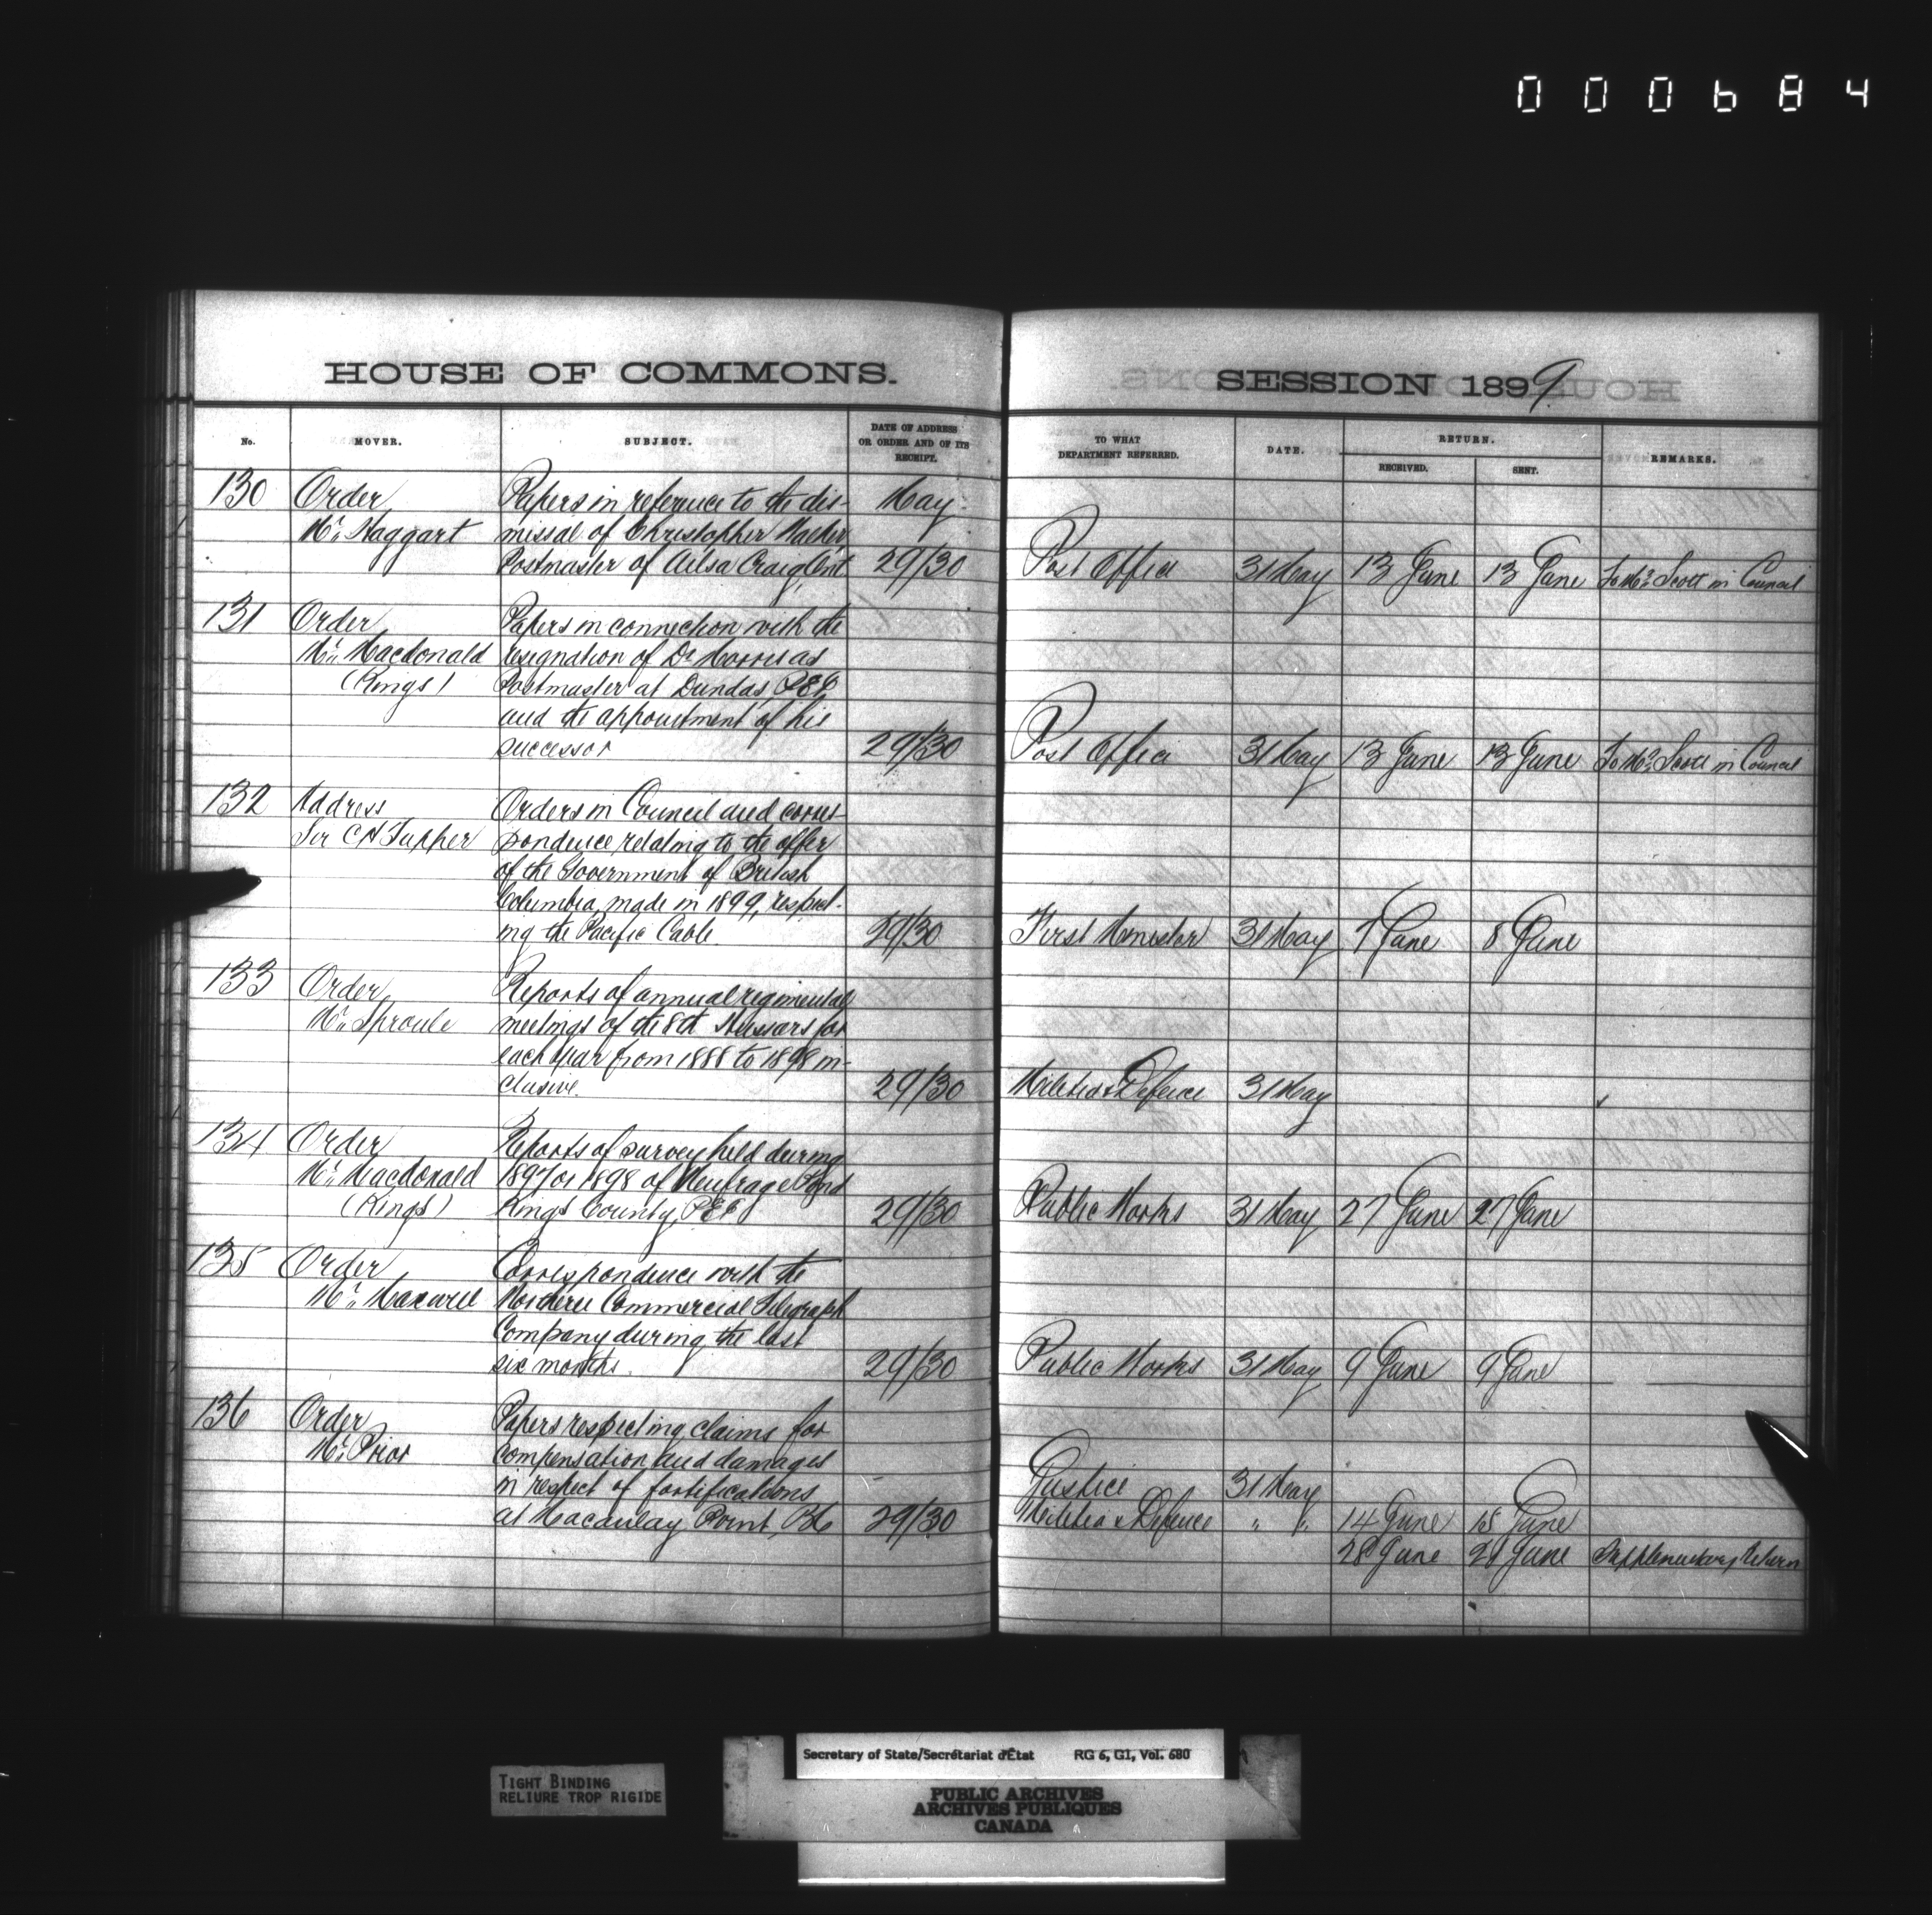 000684
HOUSE OF COMMONS.
SESSION 1899
No.
MOVER.
SUBJECT.
DATE OF ADDRESS OR ORDER AND OF ITS RECEIPT.
TO WHAT DEPARTMENT REFERRED.
DATE.
RETURN.
RECEIVED.
SENT.
REMARKS.
130 Order Papers in reference to the dis- May
Mr. Haggart missal of Christopher
Postmaster of Ailsa Craig Ont 29/30 Post Office 31 May 13 June 13 June To Mr. Scott in Council
131 Order Papers in connection with the
Mr. Macdonald resignation of Dr as
(Kings) Postmaster at Dundas, PEI,
and the appointment of his
successor 29/30 Post Office 31 May 13 June 13 June To Mr. Scott in Council
132 Address Orders in Council and corres-
Sir C H Tupper pondence relating to the offer
of the Government of British
Columbia, made in 1899, respect-
ing the Pacific Cable. 29/30 First Minister 31 May 7 June 8 June
133 Order Reports of annual regimental
Mr. Sproule meetings of the 8th Hussars for
each year from 1888 to 1898 in-
clusive. 29/30 Militia & Defence 31 May
134 Order Reports of survey held during
Mr. Macdonald 1897 or 1898 of Pond
(Kings) Kings County, PEI 29/30 Public Works 31 May 27 June 27 June
135 Order Correspondence with the
Mr. Maxwell Northern Commercial Telegraph
Company during the last
six months. 29/30 Public Works 31 May 9 June 9 June
136 Order Papers respecting claims for
Mr. Prior compensation and damages
in respect of fortifications Justice 31 May
at Macaulay Point, BC 29/30 Militia & Defence " " 14 June 15 June
28 June 28 June Supplementary Return
TIGHT BINDING
RELIURE TROP RIGIDE
Secretary of State/Secrétariat d'État RG 6, G1, Vol. 680
PUBLIC ARCHIVES
ARCHIVES PUBLIQUES
CANADA